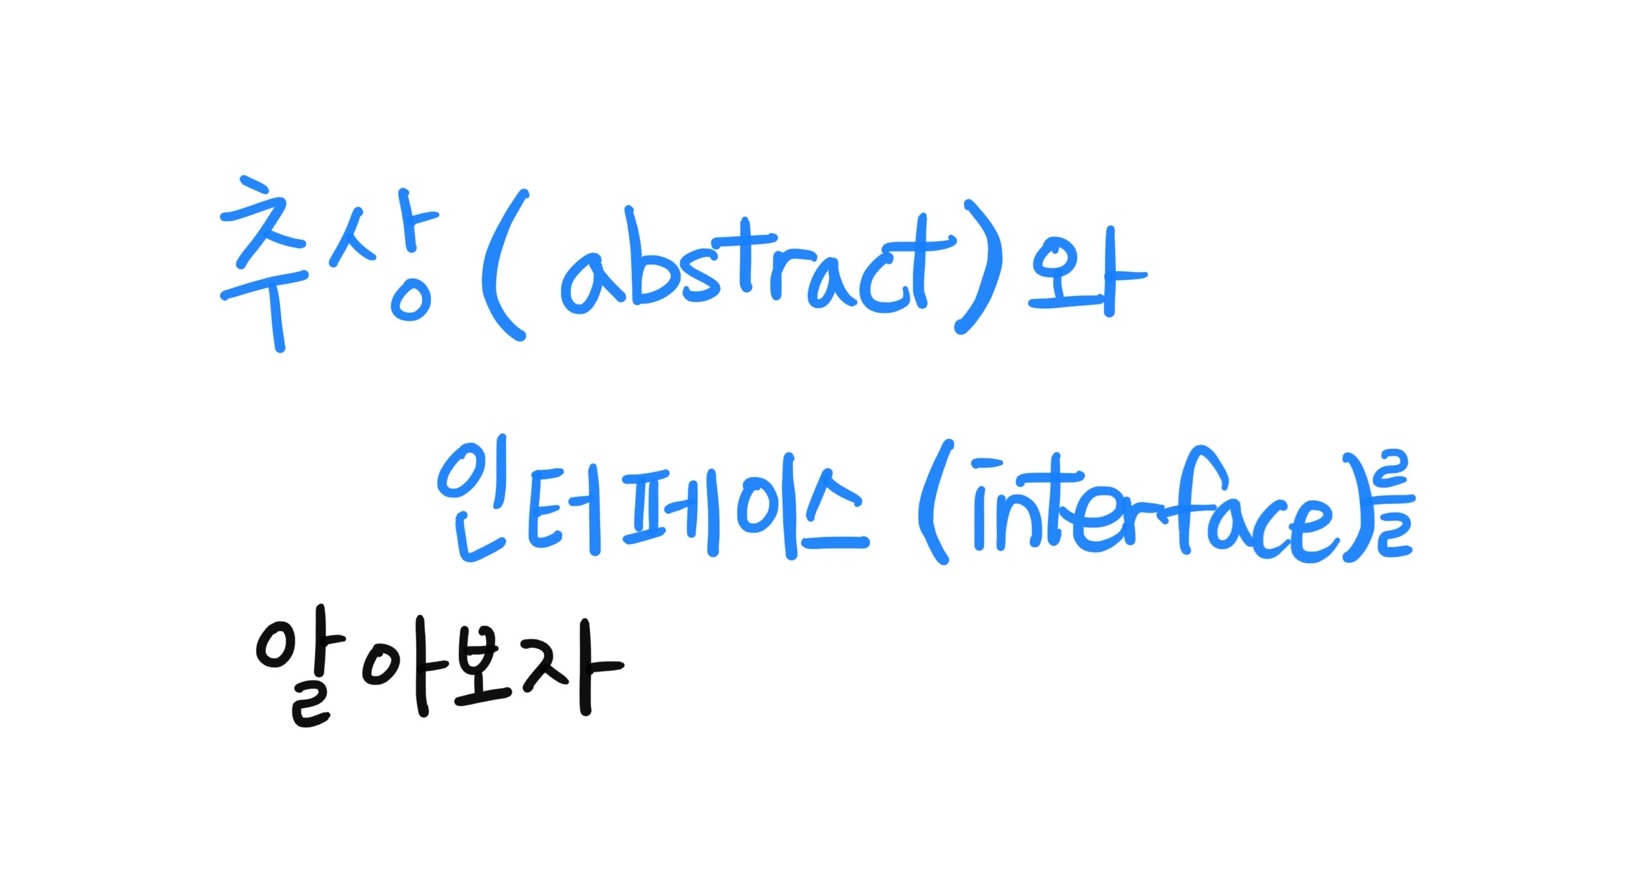 추상(abstract)와
인터페이스(interface)를
알아보자